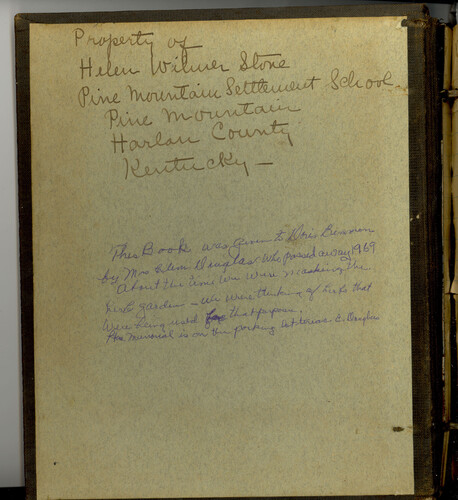 Property of
Helen Wilmer Stone
Pine Mountain Settlement School
Pine Mountain
Harlan County
Kentucky —
This Book was given to
by Mrs Douglas who passed away 1969
About the time we were making the
garden - We were thinking of that
were being used for that purpose.
is on the parking